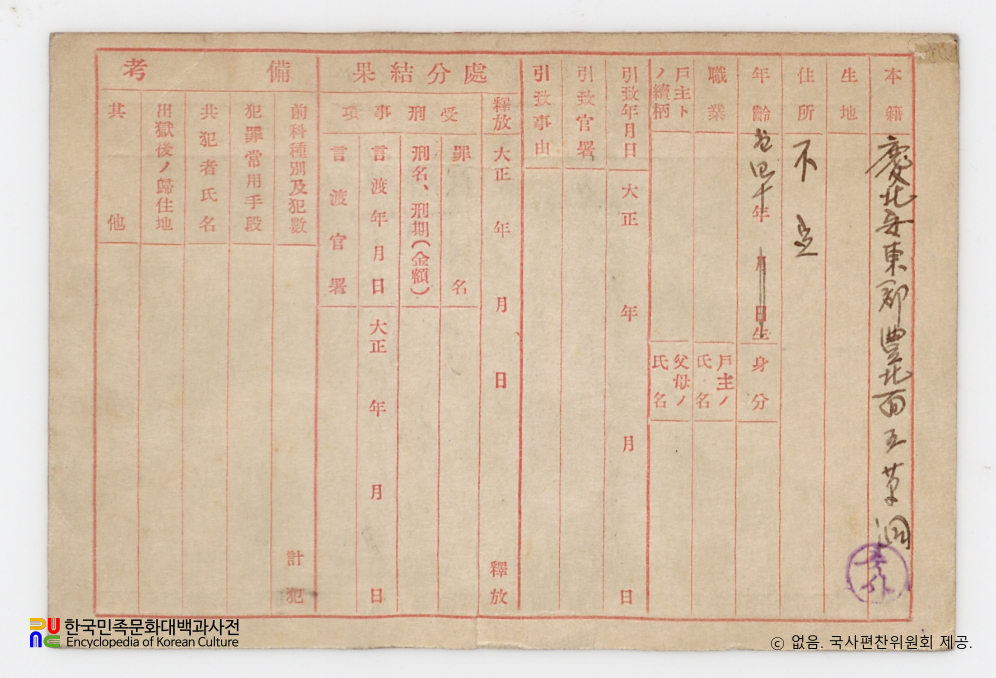 本籍 慶北安東郡豊北面五美洞
生地
住所 不定
年齡 当四十年 月 日生
身分
職業
戶主ノ氏名
戶主トノ續柄
父母ノ氏名
引致年月日 大正 年 月 日
引致官署
引致事由
處分結果
釋放 大正 年 月 日 釋放
受刑事項
罪名
刑名、刑期(金額)
言渡年月日 大正 年 月 日
言渡官署
備考
前科種別及犯數 計 犯
犯罪常用手段
共犯者氏名
出獄後ノ歸住地
其他
한국민족문화대백과사전
Encyclopedia of Korean Culture
© 없음. 국사편찬위원회 제공.